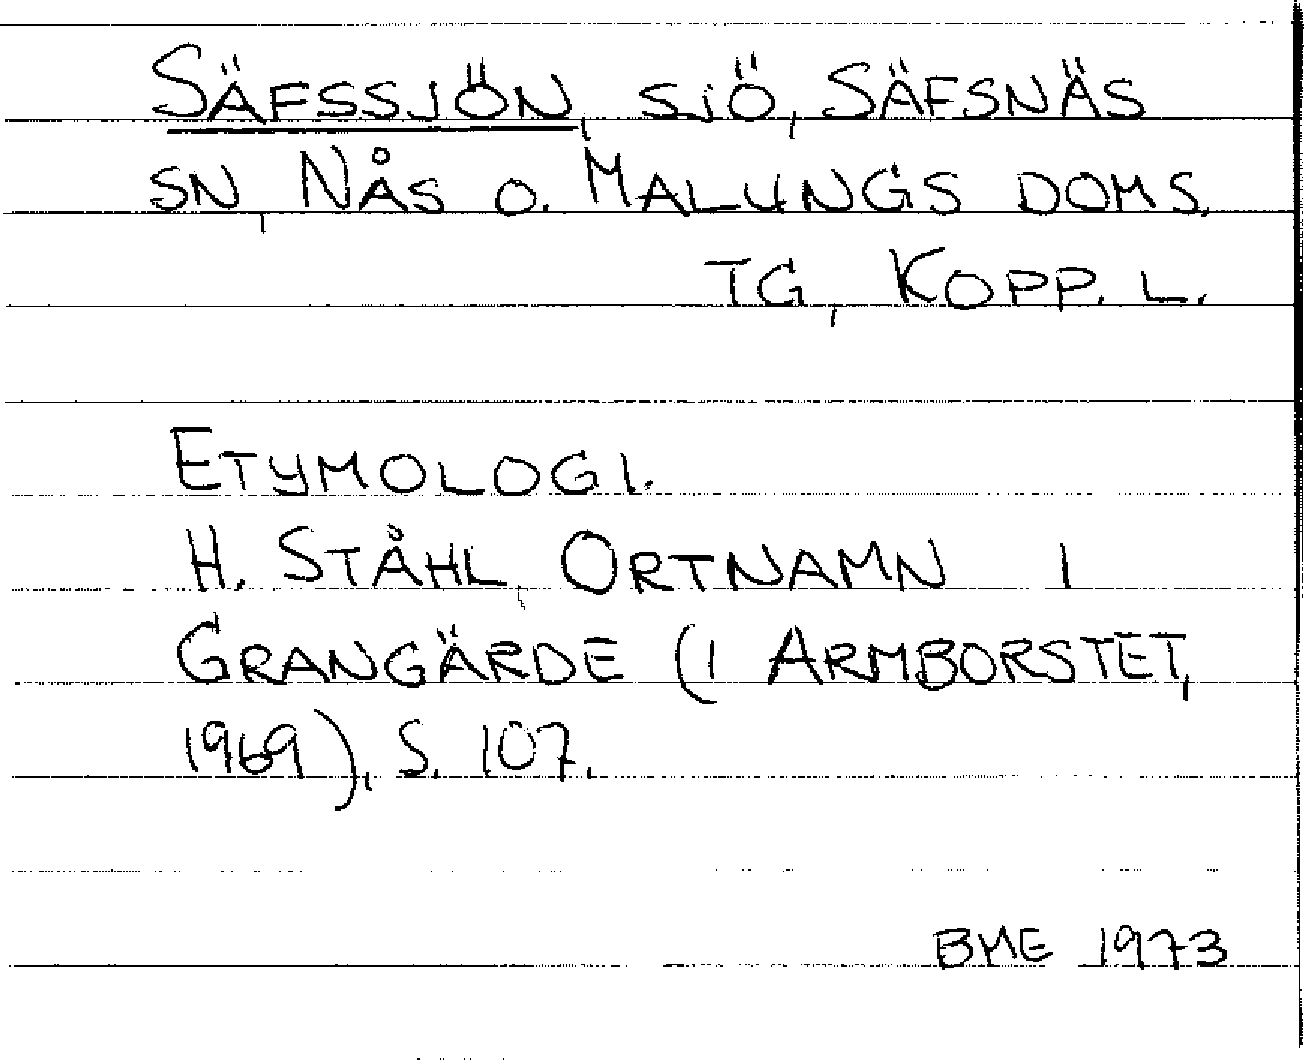 SÄFSSJÖN, SJÖ, SÄFSNÄS
SN, NÅS O. MALUNGS DOMS.
TG, KOPP. L.
ETYMOLOGI.
H. STÅHL, ORTNAMN I
GRANGÄRDE (I ARMBORSTET,
1969), S. 107.
BME 1973